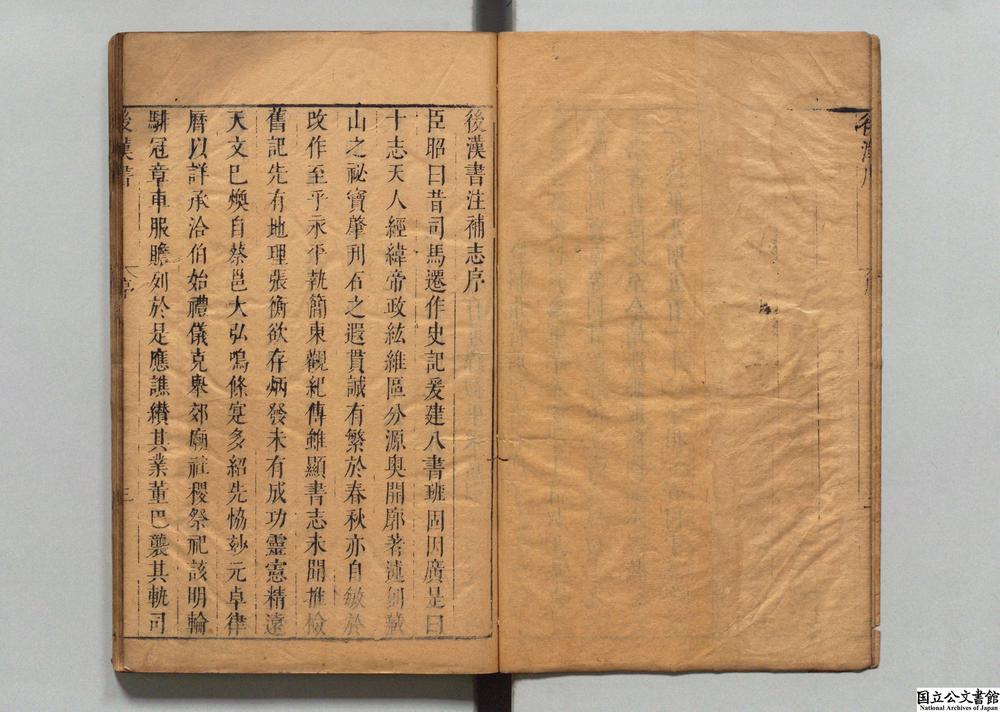 後漢書注補志序
臣昭曰昔司馬遷作史記爰建八書班固因廣是曰
十志天人經緯帝政紘維區分源奥開廓著述創藏
山之祕寶肇刋石之遐貫誠有繁於春秋亦自敏於
攺作至乎永平執簡東觀紀傳雖顯書志未聞推檢
舊記先有地理張衡欲存炳發未有成功靈憲精遠
天文巳煥自蔡邕大弘鳴條寔多紹先恊妙元卓律
曆以詳承洽伯始禮儀克舉郊廟社稷祭祀該明輪
騑冠章車服贍列於是應譙纉其業董巴襲其軌司
後漢書
序
三
国立公文書館
National Archives of Japan